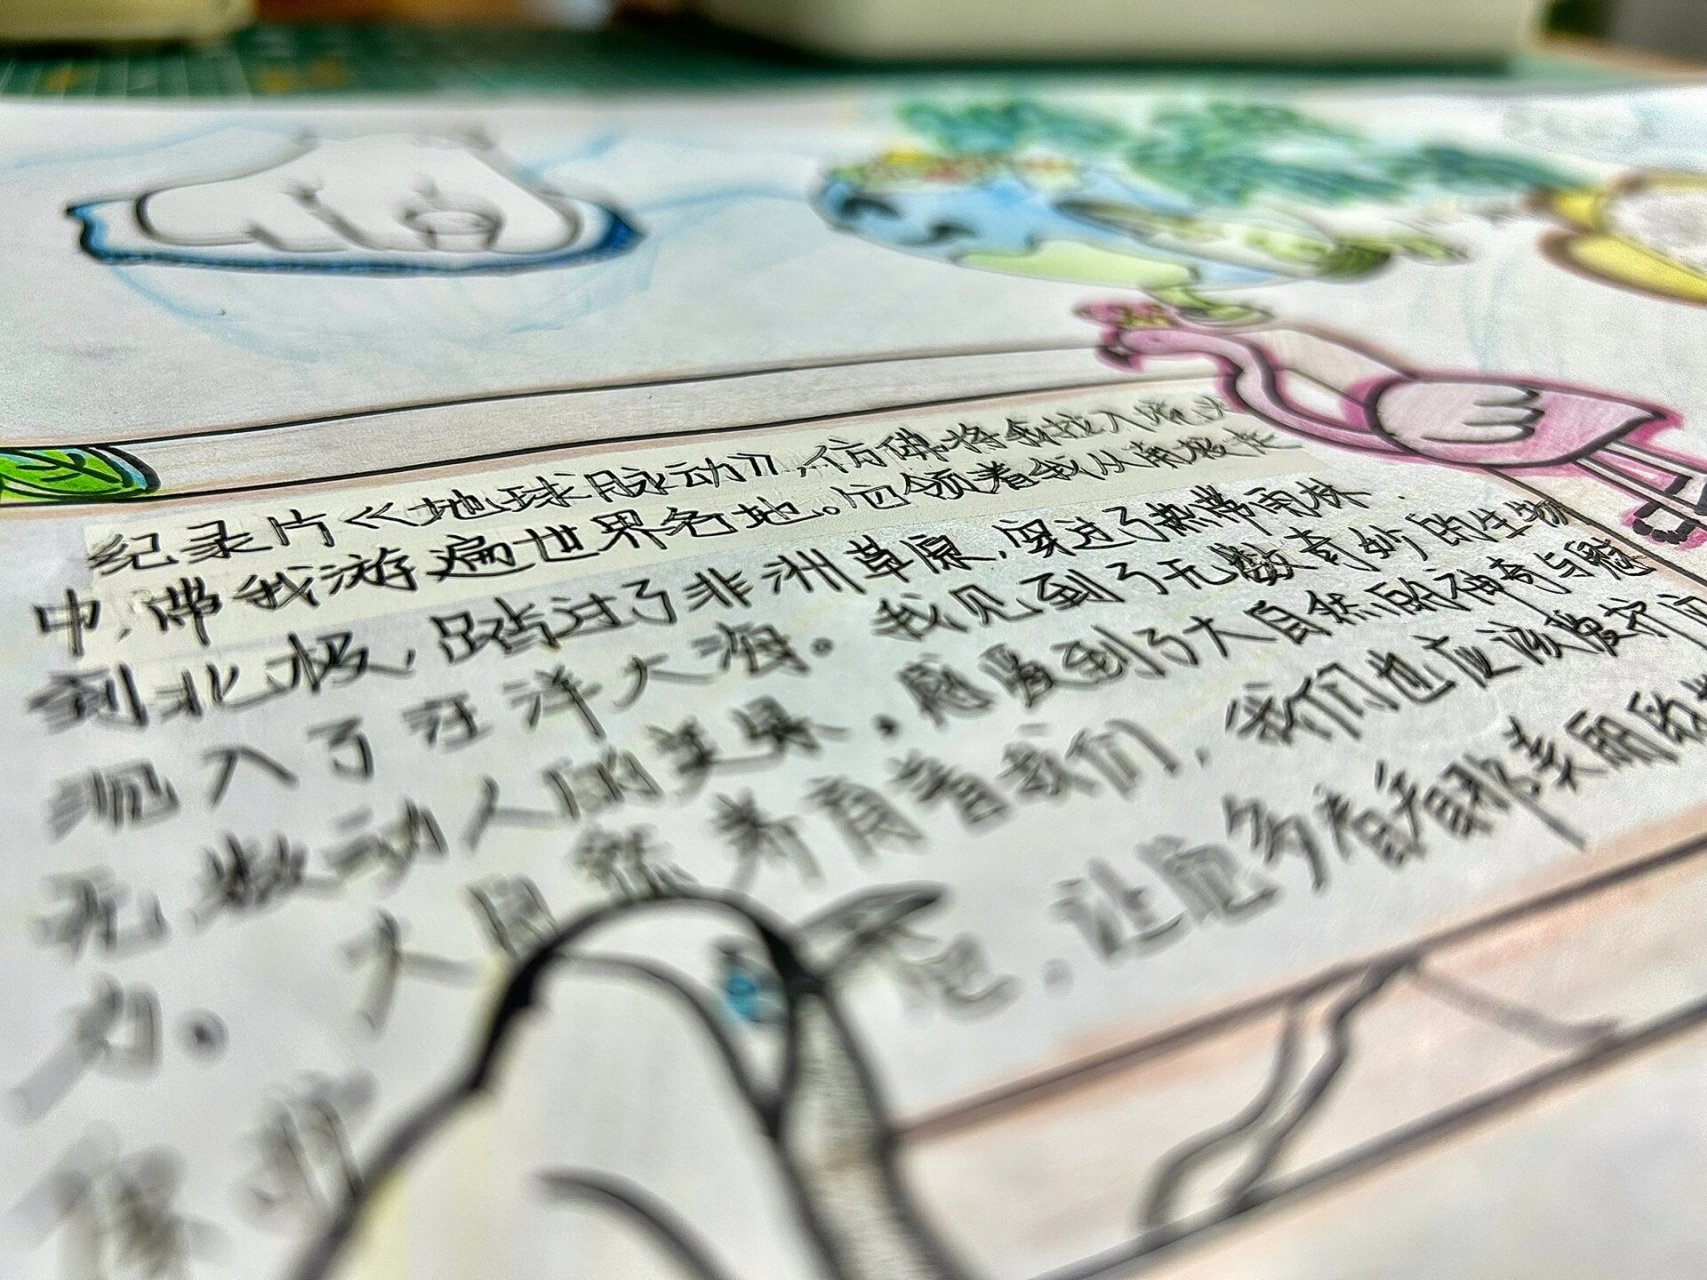 纪录片《地球脉动》,仿佛将我拉入镜头
中,带我游遍世界各地。它领着我从南极走
到北极,踏过了非洲草原,穿过了热带雨林
入了汪洋大海。我见到了无数奇妙的生物
无数动人的美景,感受到了大自然的神奇与魅
力。大自然养育着我们,我们也应该爱守
,让多看看那美丽的